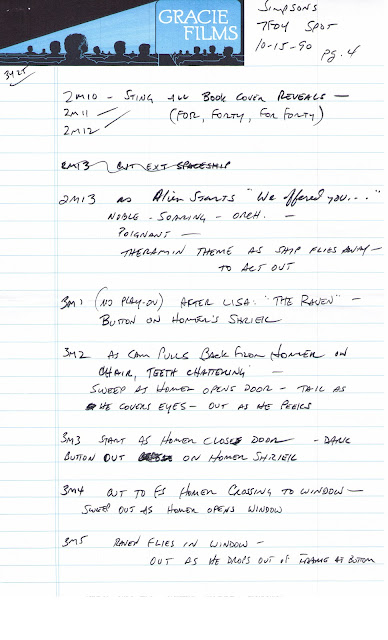 GRACIE
FILMS
SIMPSONS
7F04 SPOT
10-15-90
Pg. 4
2M10 - STING ALL BOOK COVER REVEALS —
2M11 (FOR, FORTY, FOR FORTY)
2M12
2M13 CUT EXT SPACESHIP
2M13 AS ALIEN STARTS "WE OFFERED YOU..."
NOBLE - SOARING - ORCH. —
POIGNANT —
THERAMIN THEME AS SHIP FLIES AWAY —
TO ACT OUT
3M1 (NO PLAY-ON) AFTER LISA: "THE RAVEN" —
BUTTON ON HOMER'S SHRIEK
3M2 AS CAM PULLS BACK FROM HOMER ON
CHAIR, TEETH CHATTERING —
SWEEP AS HOMER OPENS DOOR - TAIL AS
HE COVERS EYES - OUT AS HE PEEKS
3M3 START AS HOMER CLOSE DOOR - DARK
BUTTON OUT ON HOMER SHRIEK
3M4 CUT TO FS HOMER CROSSING TO WINDOW —
SWEEP OUT AS HOMER OPENS WINDOW
3M5 RAVEN FLIES IN WINDOW —
OUT AS HE DROPS OUT OF FRAME AT BOTTOM